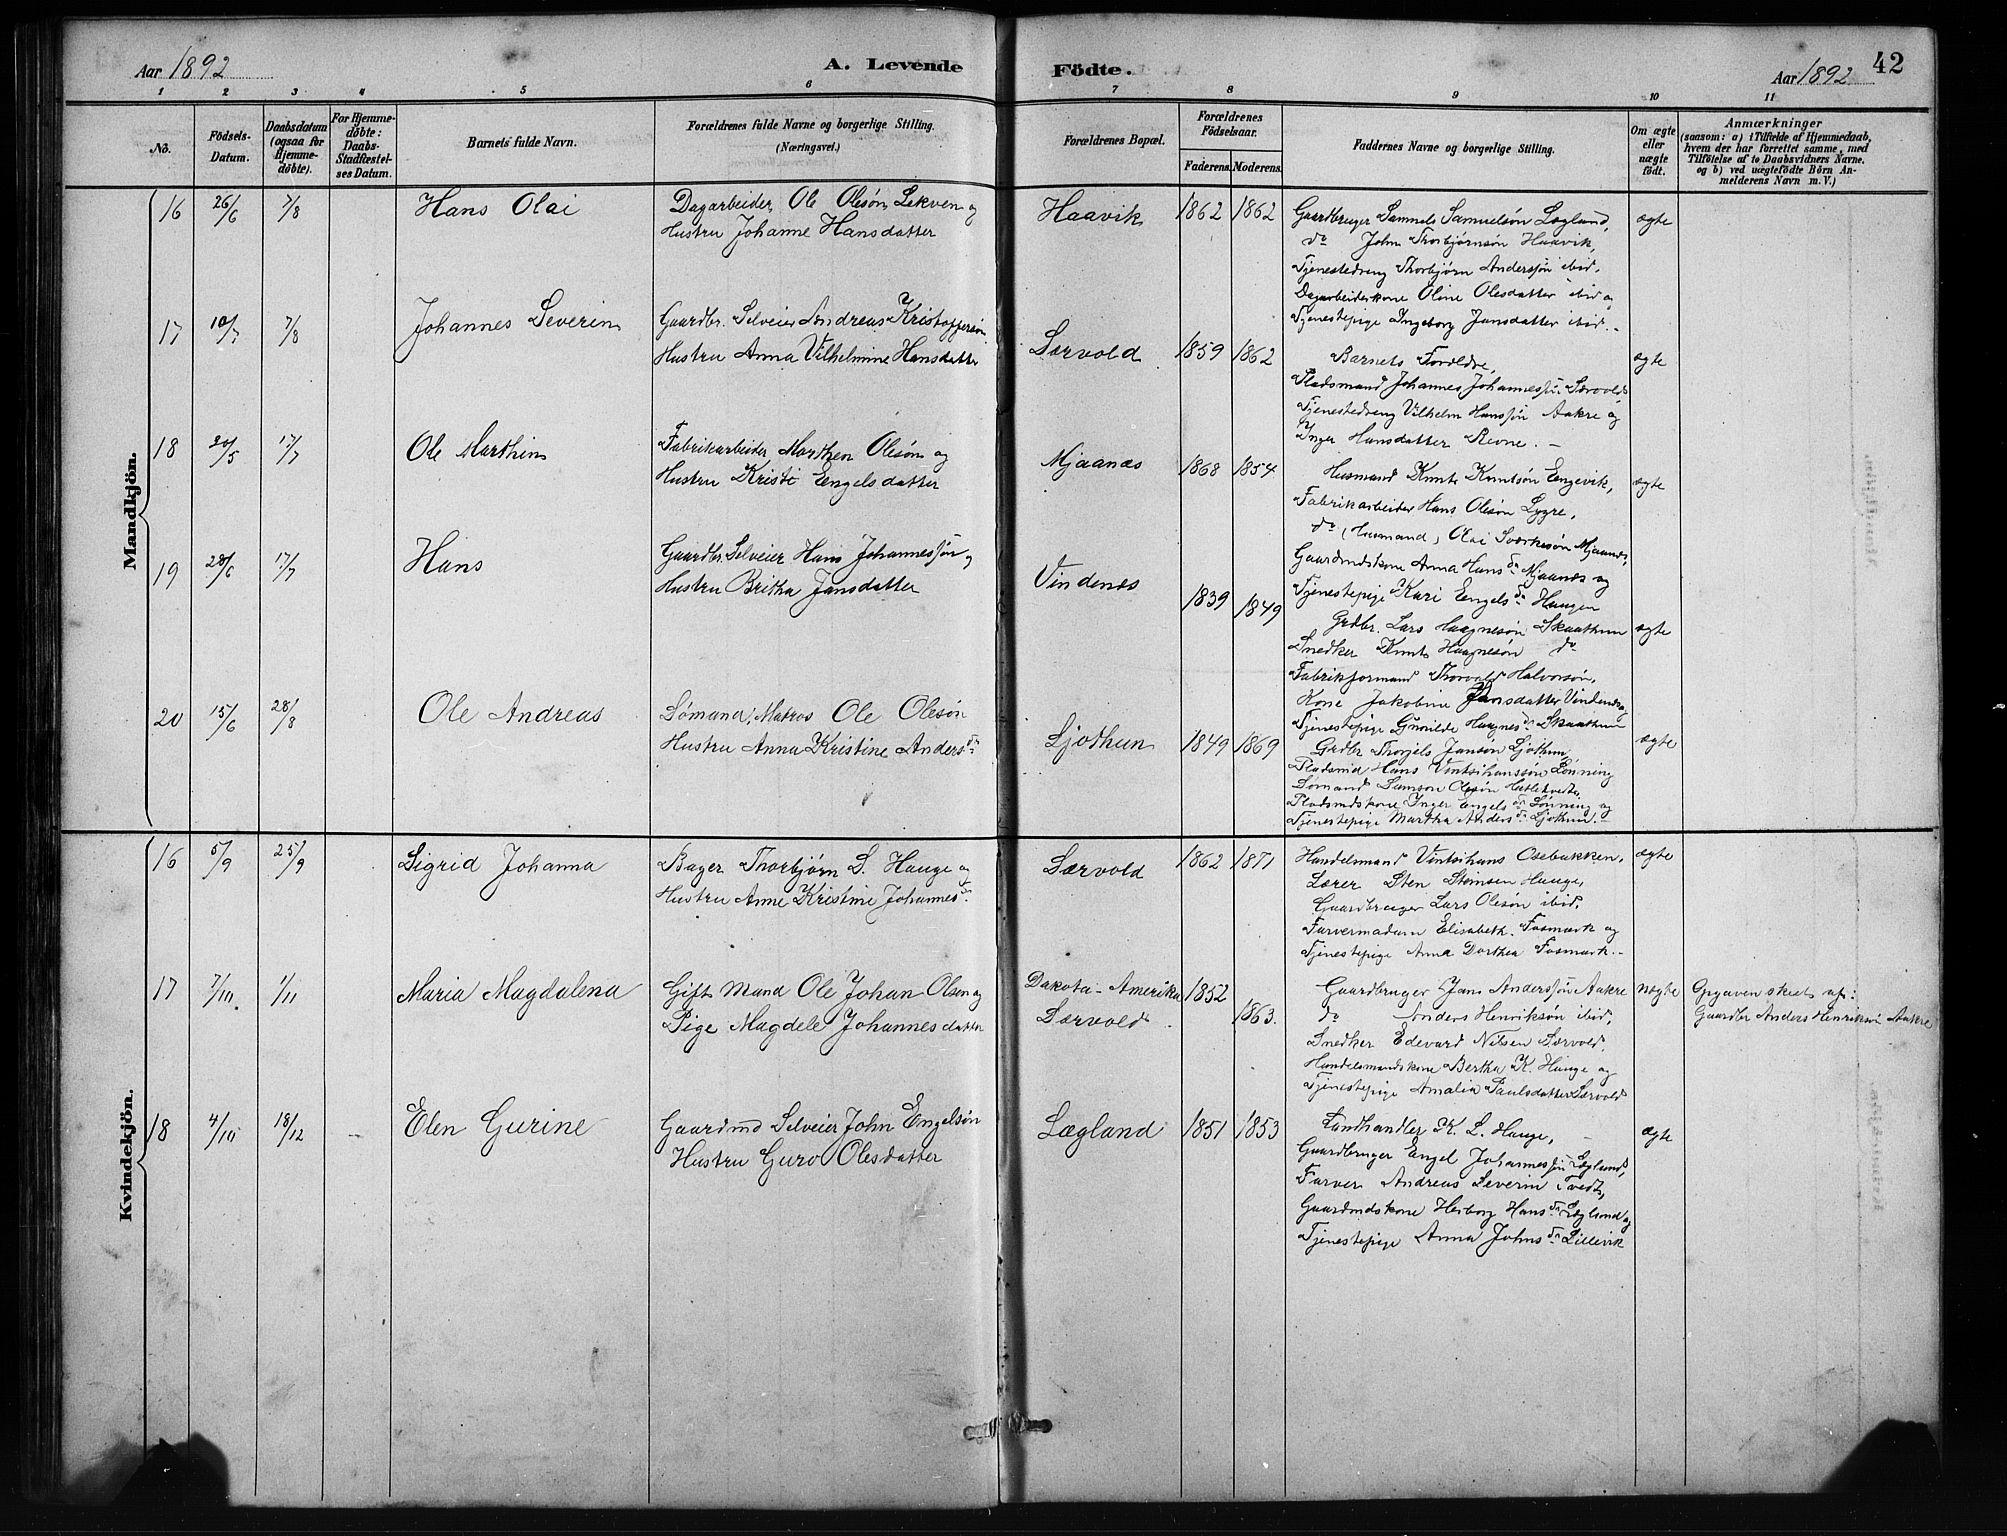 Aar 1892
A. Levende Födte.
Aar 1892
42
1 2 3 4 5 6 7 8 9 10 11
No.
Födsels-Datum.
Daabsdatum (ogsaa for Hjemmedöbte).
For Hjemmedöbte: Daabs-Stadfæstelses Datum.
Barnets fulde Navn.
Forældrenes fulde Navne og borgerlige Stilling.
(Næringsvei.)
Forældrenes Bopæl.
Forældrenes Födselsaar.
Faderens. Moderens.
Faddernes Navne og borgerlige Stilling.
Om ægte eller uægte födt.
Anmærkninger
(saasom: a) i Tilfælde af Hjemmedaab,
hvem der har forrettet samme, med
Tilföielse af to Daabsvidners Navne.
og b) ved uægtefödte Börn An-
melderens Navn m. V.)
Mandkjön.
16 26/6 7/8 Hans Olai
Dagarbeider Ole Olesön Lekven og
Hustru Johanne Hansdatter
Haavik 1862 1862
Gaardbruger Samuel Samuelsön Lægland,
do John Thorbjörnsön Haavik,
Tjenestedreng Thorbjörn Anderssön ibid,
Dagarbeiderkone Oline Olesdatter ibid og
Tjenestepige Ingeborg Jansdatter ibid. -
ægte
17 10/7 7/8 Johannes Severin
Gaardbr. Selveier Andreas Kristoffersön
Hustru Anna Vilhelmine Hansdatter
Særvold 1859 1862
Barnets Foreldre,
Pladsmand Johannes Johannessön Særvold
Tjenestedreng Vilhelm Hanssön Aakre og
Inger Hansdatter Revne. -
ægte
18 20/5 17/7 Ole Marthin
Fabrikarbeider Marthen Olesön og
Hustru Kristi Engelsdatter
Mjaanæs 1868 1854
Husmand Knut Knutsön Engevik,
Fabrikarbeider Hans Olesön Lygre,
do (Husmand) Olai Mjaanæs,
Gaardmdskone Anna Hansdr Mjaanæs og
Tjenestepige Kari Engelsdr Haugen
ægte
19 28/6 17/7 Hans
Gaardbr. Selveier Hans Johannessön og
Hustru Britha Jansdatter
Vindenæs 1839 1849
Grdbr. Lars Haagnesön Skaathun
Snedker Knut Haagnesön do
Fabrikformand Thorvald Halvorsön,
Kone Jakobine Jansdatter Vindenæs
Tjenestepige Gunilde Haagnesdr Skaathun
ægte
20 15/6 28/8 Ole Andreas
Sömand, Matros Ole Olesön
Hustru Anna Kristine Andersdr
Ljothun 1849 1869
Grdbr Jansön Ljothun,
Pladsmd Hans Lönning
Sömand Samson Olesön
Pladsmdskone Inger Engelsdr Lönning og
Tjenestepige Martha Andersdr Ljothun. -
ægte
Kvindekjön.
16 5/9 25/9 Sigrid Johanna
Bager Thorbjörn S. Hauge og
Hustru Anne Kristine Johannesdr
Særvold 1862 1871
Handelsmand Osebakken,
Lærer Sten Steinsen Hauge,
Gaardbruger Lars Olesön ibid,
Farvermadam Elisabeth Fosmark og
Tjenestepige Anna Dorthea Fosmark. -
ægte
17 7/10. 1/11 Maria Magdalena
Gift Mand Ole Johan Olsen og
Pige Magdele Johannesdatter
Dakota - Amerika 1852
Særvold. 1863.
Gaardbruger Jans Anderssön Aakre
do Anders Henriksön ibid,
Snedker Edevard Nilsen Særvold,
Handelsmandskone Bertha K. Hauge og
Tjenestepige Amalia Paulsdatter Særvold
uægte
Opgaven skeet af:
Gaardbr Anders Henriksön Aakre
18 4/10 18/12 - Elen Gurine
Gaardmd Selveier John Engelsön
Hustru Guro Olesdatter
Lægland 1851 1853
Landhandler K. L. Hauge,
Gaardbruger Engel Johannessön Lægland,
Farver Andreas Severin Tvedt,
Gaardmdskone Herborg Hansdr Lægland og
Tjenestepige Anna Johnsdr Lillevik
ægte